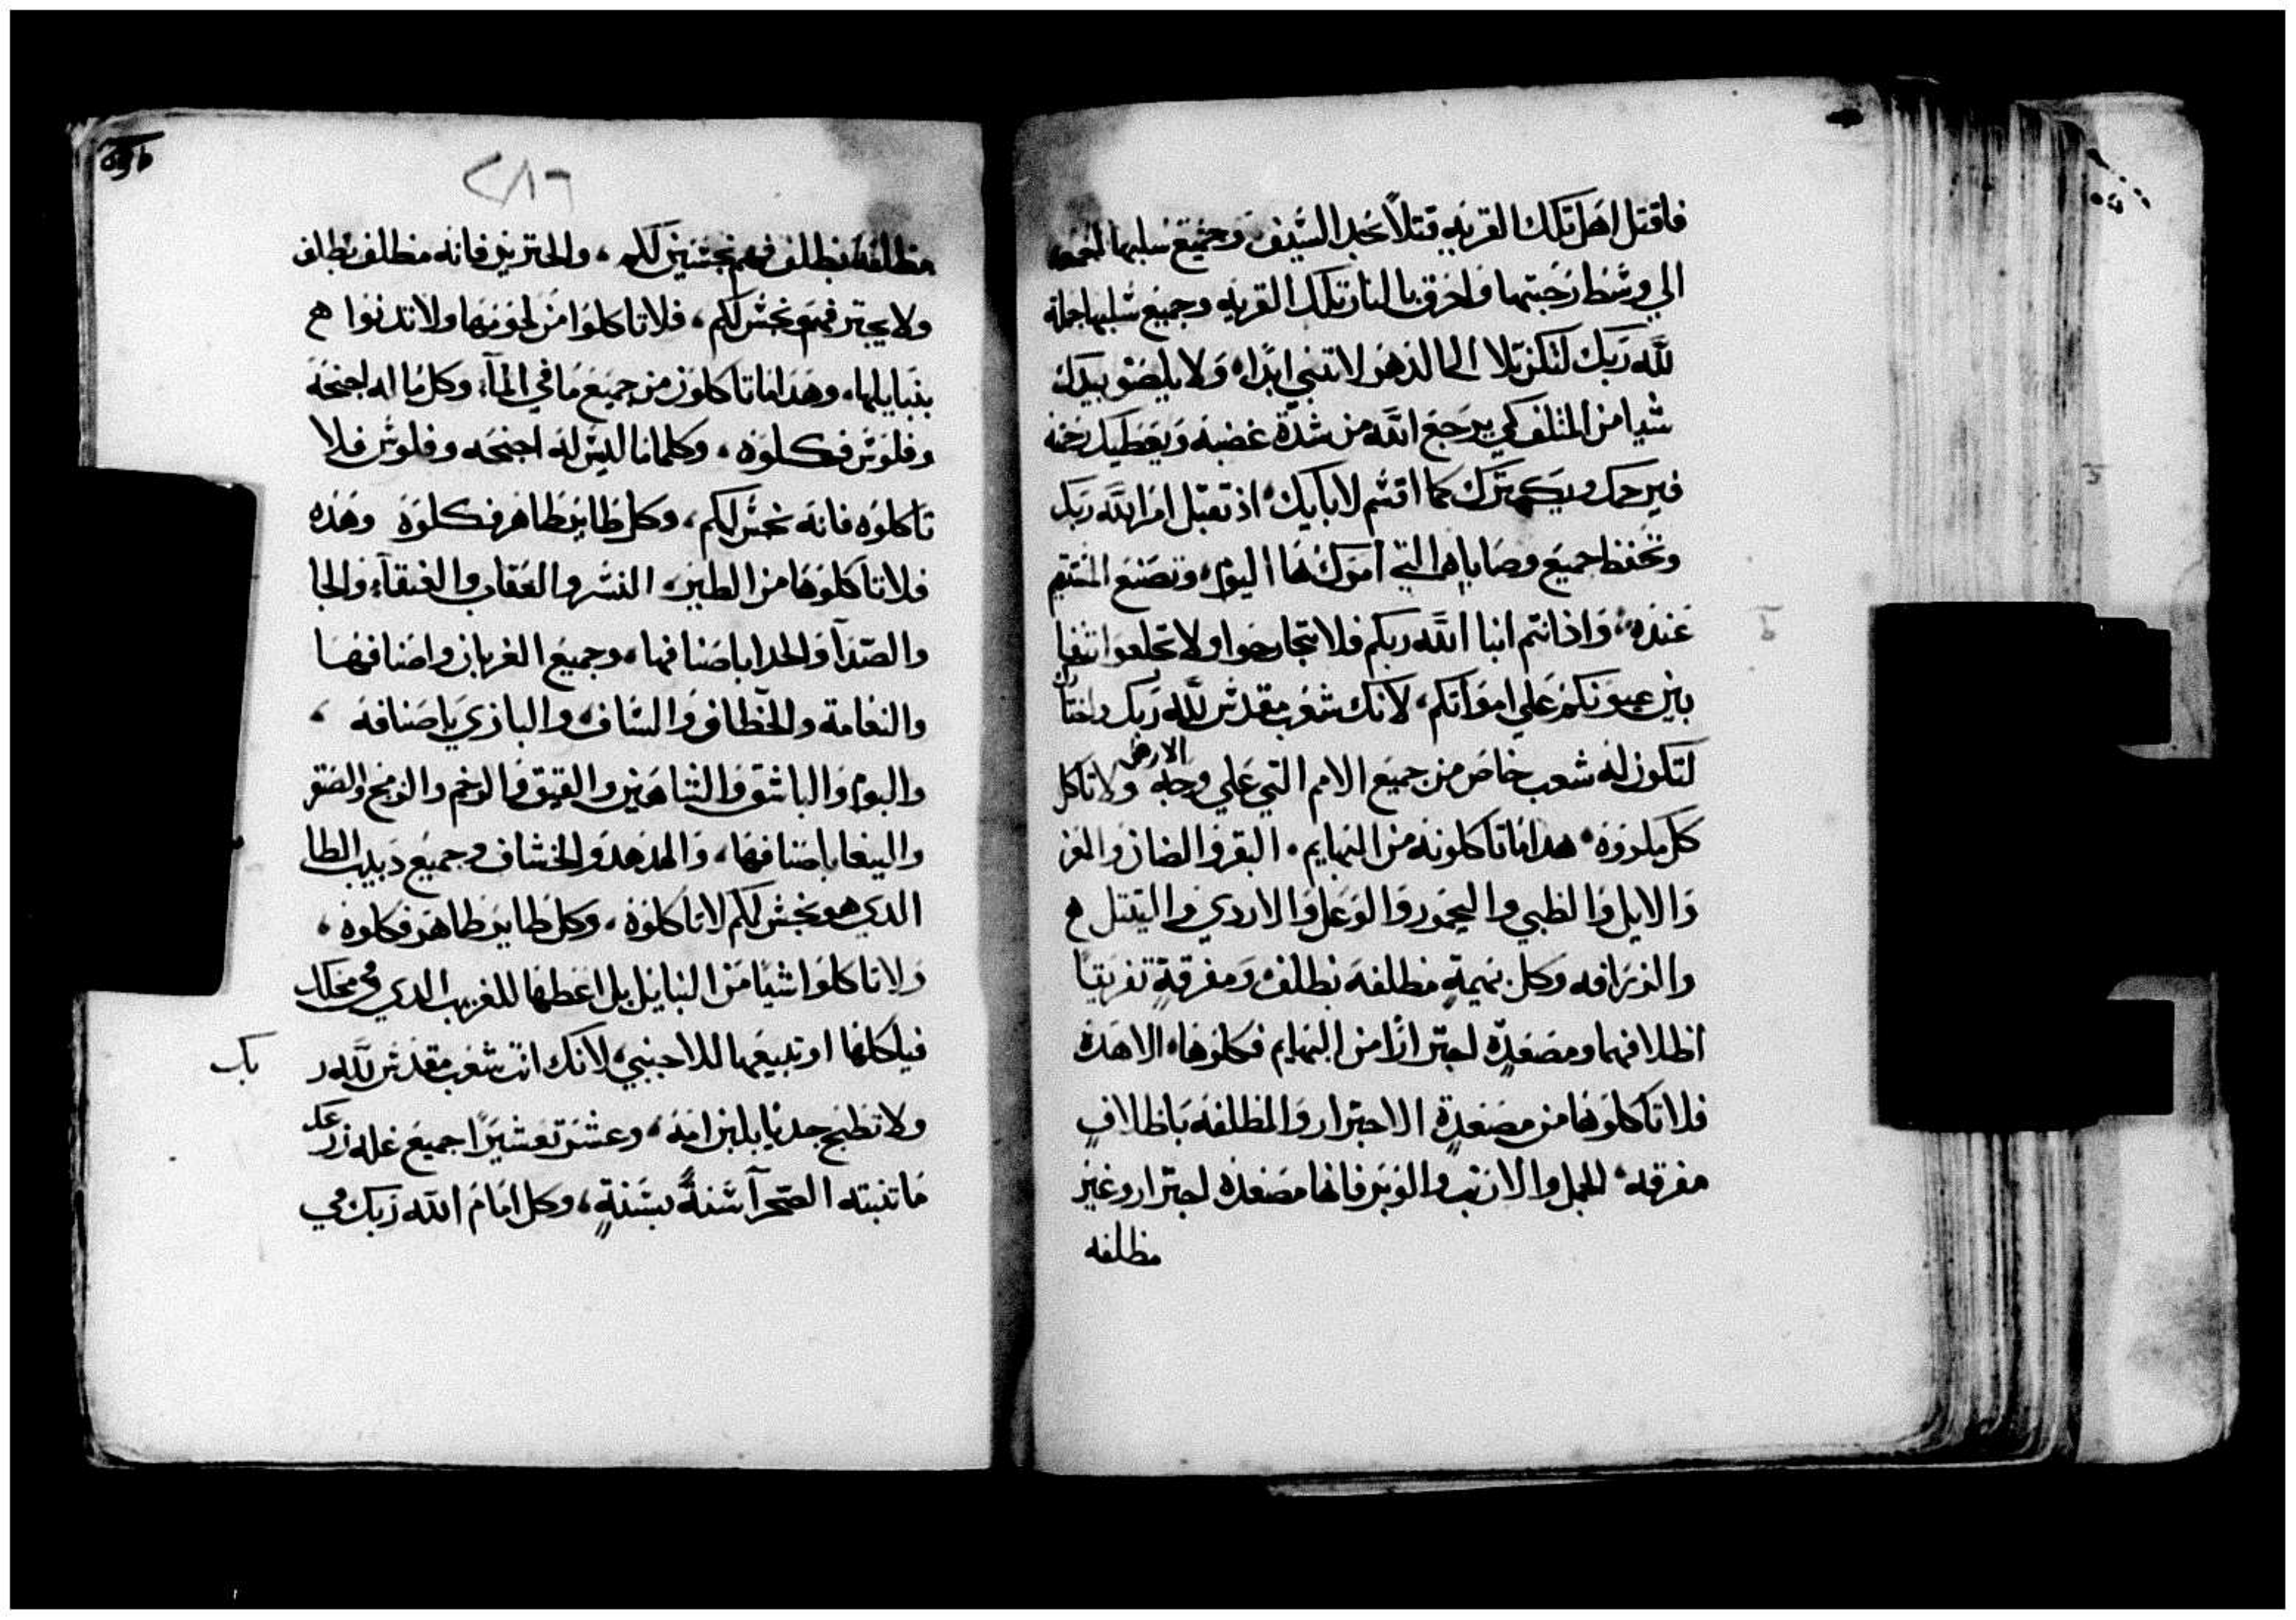 فاقتل اهل تلك القريه قتلاً بحد السيف وجميع سلبها تجمعه
الي وسط رحبتها واحرق بالنار تلك القريه وجميع سلبها جملة
لله ربك لتكن تلا الي الدهر لا تنبني ابداً، ولا يلصق بيدك
شيا من المتلف كي يرجع الله من شدة غضبه ويعطيك رحمه
فيرحمك ويكترك كما اقسم لابايك، اذ تقبل امر الله ربك
وتحفظ جميع وصاياه التي امرك بها اليوم، وتصنع المستقيم
عنده، واذ انتم ابنا الله ربكم فلا تتجارحوا ولا تجلعوا نتفا
بين عيونكم علي امواتكم، لانك شعب مقدس لله ربك واختارك
لتكون له شعب خاص من جميع الامم التي علي وجه الارض ولا تاكل
كل مكروه، هدا ما تاكلونه من البهايم، البقر والضان والمعز
والايل والظبي واليحمور والوعل والاروي والتيتل ه
والزرافه وكل بهيمةٍ مظلفه بظلف، ومفرقةٍ تفريقاً
اظلافها ومصعدةٍ اجتراراً من البهايم فكلوها، الا هذه
فلا تاكلوها من مصعدةٍ الاجترار والمظلفه باظلافٍ
مفرقه، الجمل والارنب والوبر فانها مصعده اجترار وغير
مظلفه
ō9b
٢٨٦
مظلفه بظلف فهم نجسين لكم، والخنزير فانه مظلف بظلف
ولا يجتر فهو نجس لكم، فلا تاكلوا من لحومها ولا تدنوا ه
بنبايلها، وهدا ما تاكلون من جميع ما في المآء، وكل ما له اجنحه
وفلوس فكلوه، وكلما ليس له اجنحه وفلوس فلا
تاكلوه فانه نجس لكم، وكل طاير طاهر فكلوه وهذه
فلا تاكلوها من الطير، النسر والعقاب والعنقآء والحا
والصدآ والحدا باصنافها، وجميع الغربان واصنافها
والنعامة والخطاف والساف، والبازي باصنافه،
والبوم والباشق والشاهين والقيق والرخم والزمج والصقر
والببغا باصنافها، والهدهد والخشاف وجميع دبيب الطا
الدي هو نجس لكم لا تاكلوه، وكل طاير طاهر فكلوه،
ولا تاكلوا شياً من النبايل بل اعطها للغريب الدي في محلك
فياكلها او تبيعها للاجنبي، لانك انت شعب مقدس لله ر بك
ولا تطبخ جديا بلبن امه، وعشر تعشيراً جميع غله زرعك
ما تنبته الصحرآ سنةً بسنةٍ، وكل امام الله ربك في